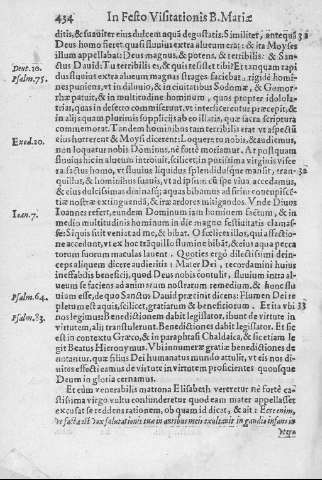 434 In Festo Visitationis B. Mariæ
ditis, & suauiter eius dulcem aquā degustatis. Similiter, antequā
Deus homo fieret quasi fluuius extra alueum erat: & ita Moyses
illum appellabat: Deus magnus, & potens, & terribilis: & San-
ctus Dauid: Tu terribilis es, & quis resistet tibi? Et tanquam rapi
dus fluuius extra alueum magnas strages faciebat: rigidè homi-
nes puniens, vt in diluuio, & in ciuitatibus Sodomæ, & Gomor-
rhæ patuit, & in multitudine hominum, quos propter idolola-
trias, quas in deserto commiserunt, vt interficerentur præcepit, &
in alijs quam plurimis supplicijs ab eo illatis, quæ sacra scriptura
commemorat. Tandem hominibus tam terribilis erat vt aspectū
eius horrerent & Moysi dicerent: Loquere tu nobis, & audiemus,
non loquatur nobis Dominus, ne fortè moriamur. At postquam
fluuius hic in alueum introiuit, scilicet, in purissimæ virginis visce
ra factus homo, vt fluuius liquidus splendidusque mansit, tran-
quillus, & hominibus suauis, vt ad ipsum cū spe viua accedamus,
& eius dulcissimas animalis aquas bibamus ad sitim concupiscē-
tiæ nostræ extinguendā, & iræ ardores mitigandos. Vnde Diuus
Ioannes refert, eundem Dominum iam hominem factum, & in
medio multitudinis hominum in die magno festiuitatis clamas-
se: Si quis sitit veniat ad me, & bibat. O felices illos, qui affectio-
ne accedunt, vt ex hoc trāquillo flumine bibāt, & eius aqua pecca
torum suorum maculas lauent. Quoties ergo dilectissimi dein-
ceps aliquem dicere audieritis: Mater Dei, recordamini huius
ineffabilis beneficij, quod Deus nobis contulit, fluuium intra al-
ueum se faciens ad animarum nostrarum remedium, & hunc flu
uium esse, de quo Sanctus Dauid præcinit dicens: Flumen Dei re
pletum est aquis, scilicet, gratiarum & beneficiorum. Et ita vbi
nos legimus: Benedictionem dabit legislator, ibunt de virtute in
virtutem, alij transtulerunt. Benedictiones dabit legislator. Et sic
est in contextu Græco, & in paraphrasi Chaldaica, & sic etiam le
git Beatus Hieronymus. Vbi innumeræ gratiæ benedictiones de
notantur, quæ filius Dei humanatus mundo attulit, vt eis nos di-
uites effecti eamus de virtute in virtutem proficientes quousque
Deum in gloria cernamus.
Et cùm venerabilis matrona Elisabeth vereretur nè fortè ca-
stissima virgo vultu confunderetur quod eam mater appellasset
excusat se reddens rationem, ob quam id dicat, & ait: Ecce enim,
vt facta est vox salutationis tuæ in auribus meis exultauit in gaudio infans in
vtero
Deut. 10.
Psalm. 75.
Exod. 20.
Ioan. 7.
Psalm. 64.
Psalm. 83.
31
32
33